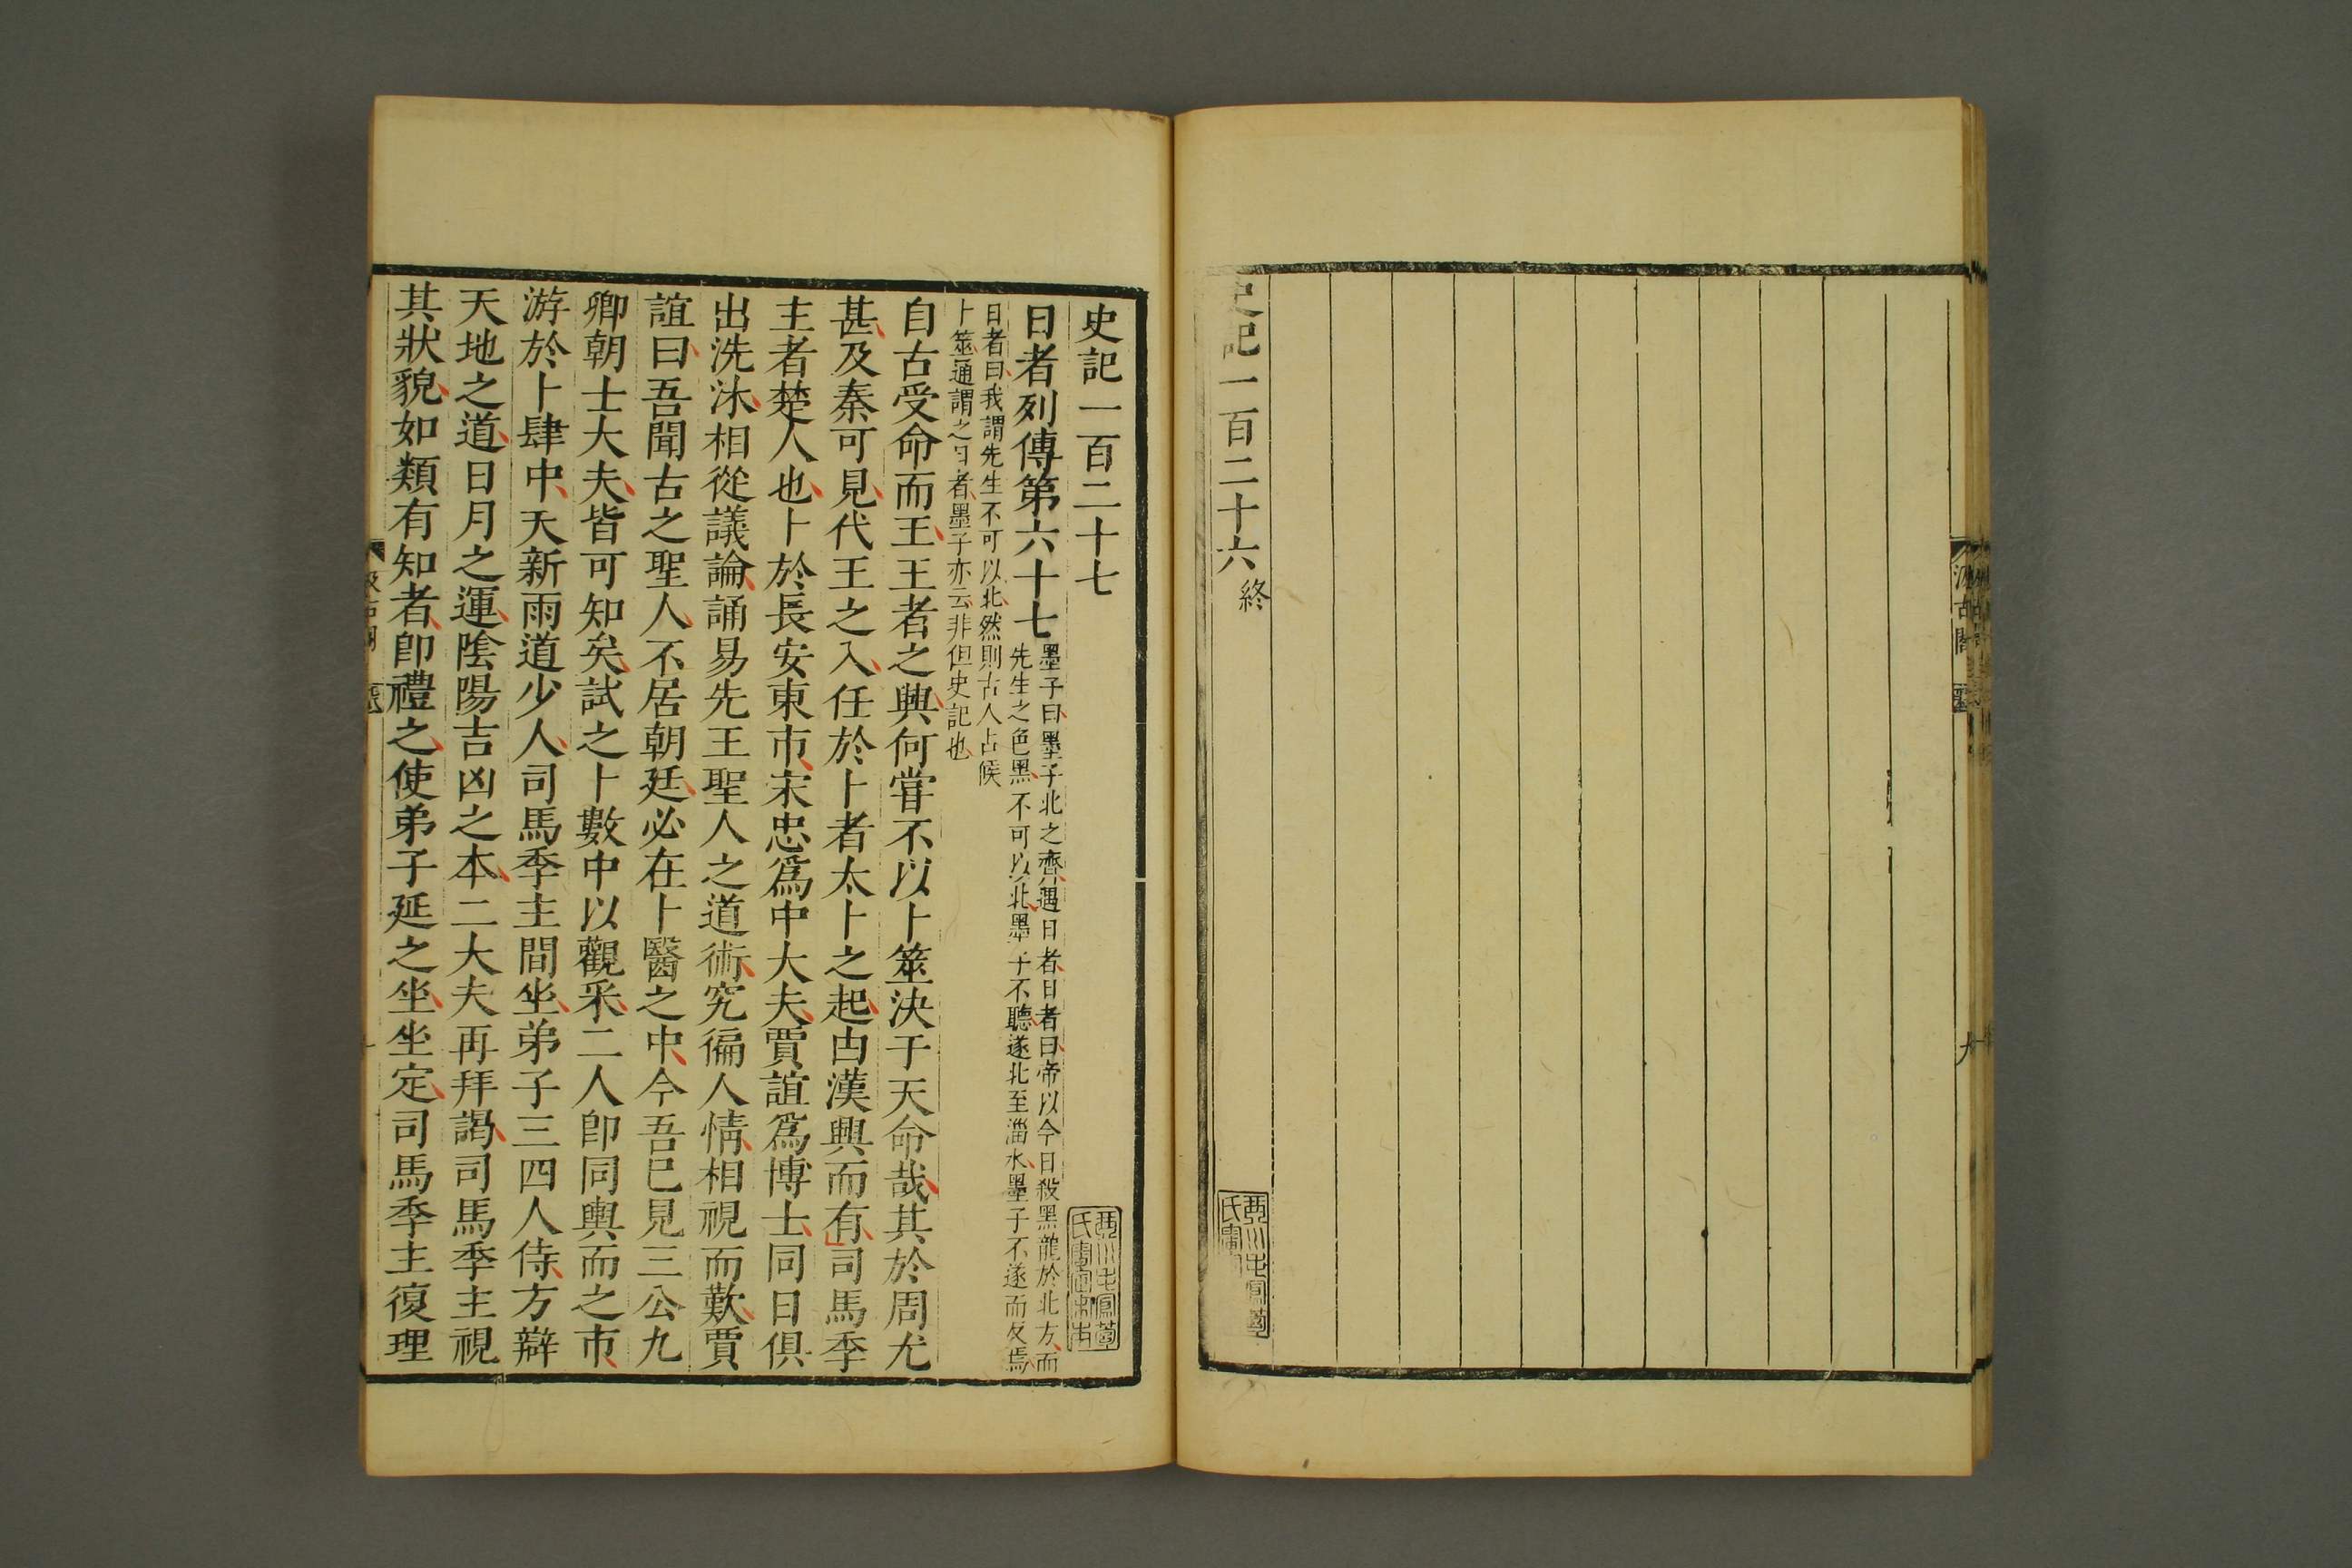 史記一百二十六終
汲古閣
史記一百二十七
日者列傳第六十七
墨子曰墨子北之齊遇日者日者曰帝以今日殺黑龍於北方而
先生之色黑不可以北墨子不聽遂北至淄水墨子不遂而反焉
日者曰我謂先生不可以北然則古人占候
卜筮通謂之日者墨子亦云非但史記也
自古受命而王王者之興何甞不以卜筮決于天命哉其於周尤
甚及秦可見代王之入任於卜者太卜之起由漢興而有司馬季
主者楚人也卜於長安東市宋忠爲中大夫賈誼爲博士同日俱
出洗沐相從議論誦易先王聖人之道術究徧人情相視而歎賈
誼曰吾聞古之聖人不居朝廷必在卜醫之中今吾已見三公九
卿朝士大夫皆可知矣試之卜數中以觀采二人卽同輿而之市
游於卜肆中天新雨道少人司馬季主間坐弟子三四人侍方辯
天地之道日月之運陰陽吉凶之本二大夫再拜謁司馬季主視
其狀貌如類有知者卽禮之使弟子延之坐坐定司馬季主復理